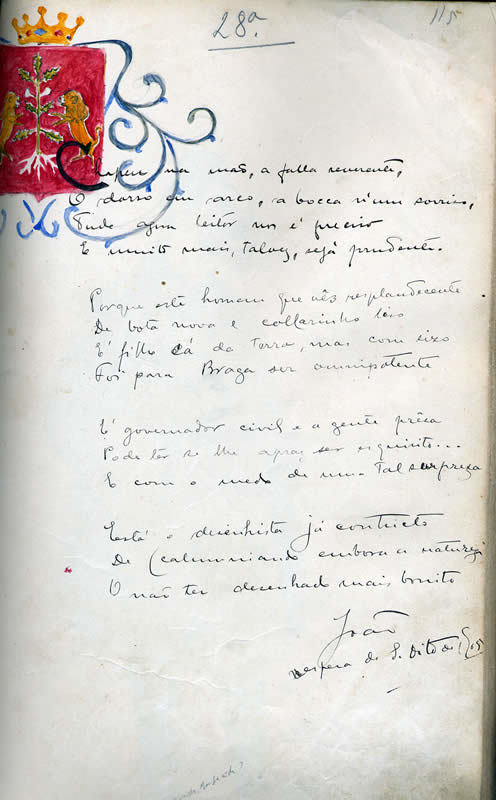 28.ª
115
Chapeu na mão, a falla reverente,
O dorso em arco, a bocca n'um sorriso,
Tudo aqui leitor nos é preciso
E muito mais, talvez, seja prudente.
Porque este homem que vês resplandecente
De bota nova e collarinho liso
É filho cá da terra, mas com sizo
Foi para Braga ser omnipotente
É governador civil e a gente prêsa
Pode ter se lhe apraz ser esquisito...
E com o medo de uma tal surpreza
Está o desenhista já contricto
De (calumniando embora a natureza
O não ter desenhado mais bonito
João
vespera de S. Dito de